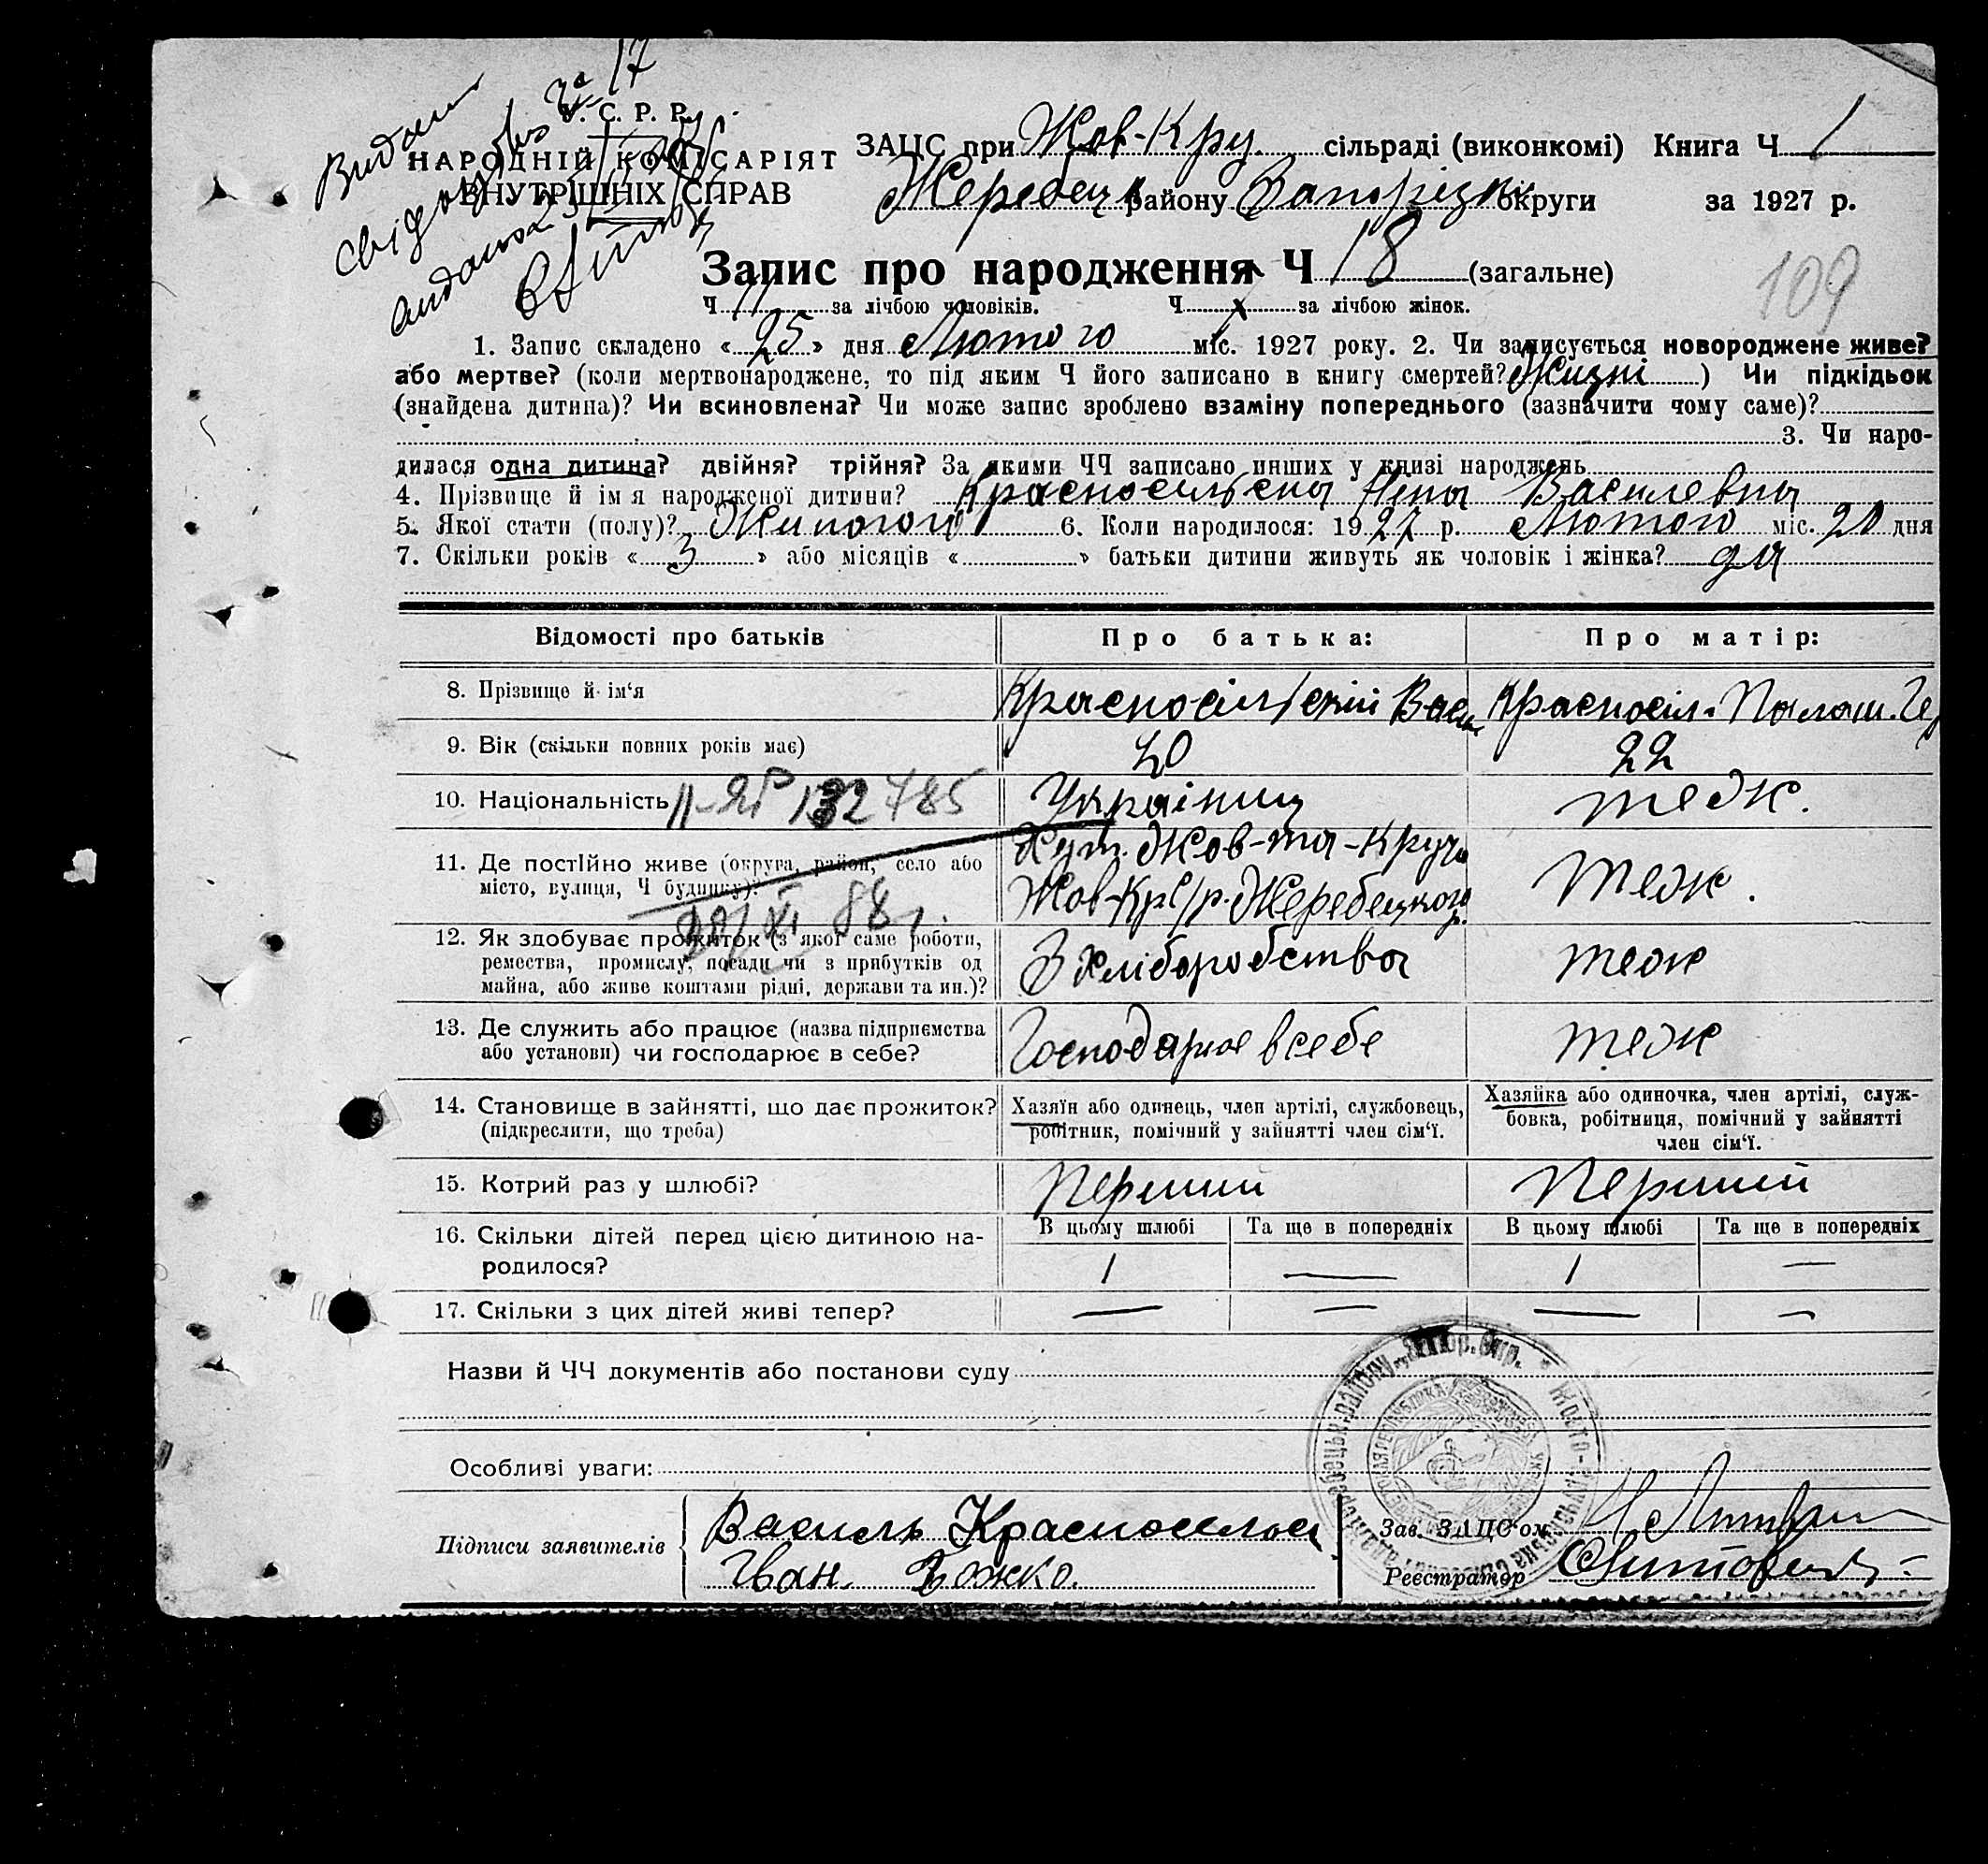 У. С. Р. Р.
НАРОДНІЙ КОМІСАРІЯТ
ВНУТРІШНІХ СПРАВ
Видано
ЗАЦС при Жов-Кру. сільраді (виконкомі) Книга Ч 1
Жеребец району Запоріцьк округи за 1927 р.
Запис про народження Ч 18 (загальне)
109
Ч 11 за лічбою чоловіків. Ч х за лічбою жінок.
1. Запис складено «25» дня Лютого міс. 1927 року. 2. Чи записується новороджене живе?
або мертве? (коли мертвонароджене, то під яким Ч його записано в книгу смертей? ) Чи підкідьок
(знайдена дитина)? Чи всиновлена? Чи може запис зроблено взаміну попереднього (зазначити чому саме)?
3. Чи наро-
дилася одна дитина? двійня? трійня? За якими ЧЧ записано инших у книзі народжень
4. Прізвище й ім я народженої дитини? Красносільска Ніна Василевна
5. Якої стати (полу)? Жиночого 6. Коли народилося: 1927 р. Лютого міс. 20 дня
7. Скільки років «3» або місяців « » батьки дитини живуть як чоловік і жінка? да
Відомості про батьків Про батька: Про матір:
8. Прізвище й ім‘я Красносільский Васи Красносіл. Палаш. Ге
9. Вік (скільки повних років має) 20 22
10. Національність Українци теж.
II-ЯР 132785
11. Де постійно живе (округа, район, село або
місто, вулиця, Ч будинку)? Хут. Жов-та-Круча
Жов-Кр С/р. Жеребецкого р. теж.
12. Як здобуває прожиток (з якої саме роботи,
ремества, промислу, посади чи з прибутків од
майна, або живе коштами рідні, держави та ин.)? З хліборобства теж
13. Де служить або працює (назва підприємства
або установи) чи господарює в себе? Господарює в себе теж
14. Становище в зайнятті, що дає прожиток?
(підкреслити, що треба)
Хазяїн або одинець, член артілі, службовець,
робітник, помічний у зайнятті член сім‘ї.
Хазяйка або одиночка, член артілі, служ-
бовка, робітниця, помічний у зайнятті
член сім‘ї.
15. Котрий раз у шлюбі? Перший Перший
16. Скільки дітей перед цією дитиною на-
родилося?
В цьому шлюбі Та ще в попередніх В цьому шлюбі Та ще в попередніх
1 — 1 —
17. Скільки з цих дітей живі тепер? — — — —
Назви й ЧЧ документів або постанови суду
Особливі уваги:
Підписи заявителів Василь Красносельс
Іван Божко.
Зав. ЗАЦС‘ом
Реєстратор